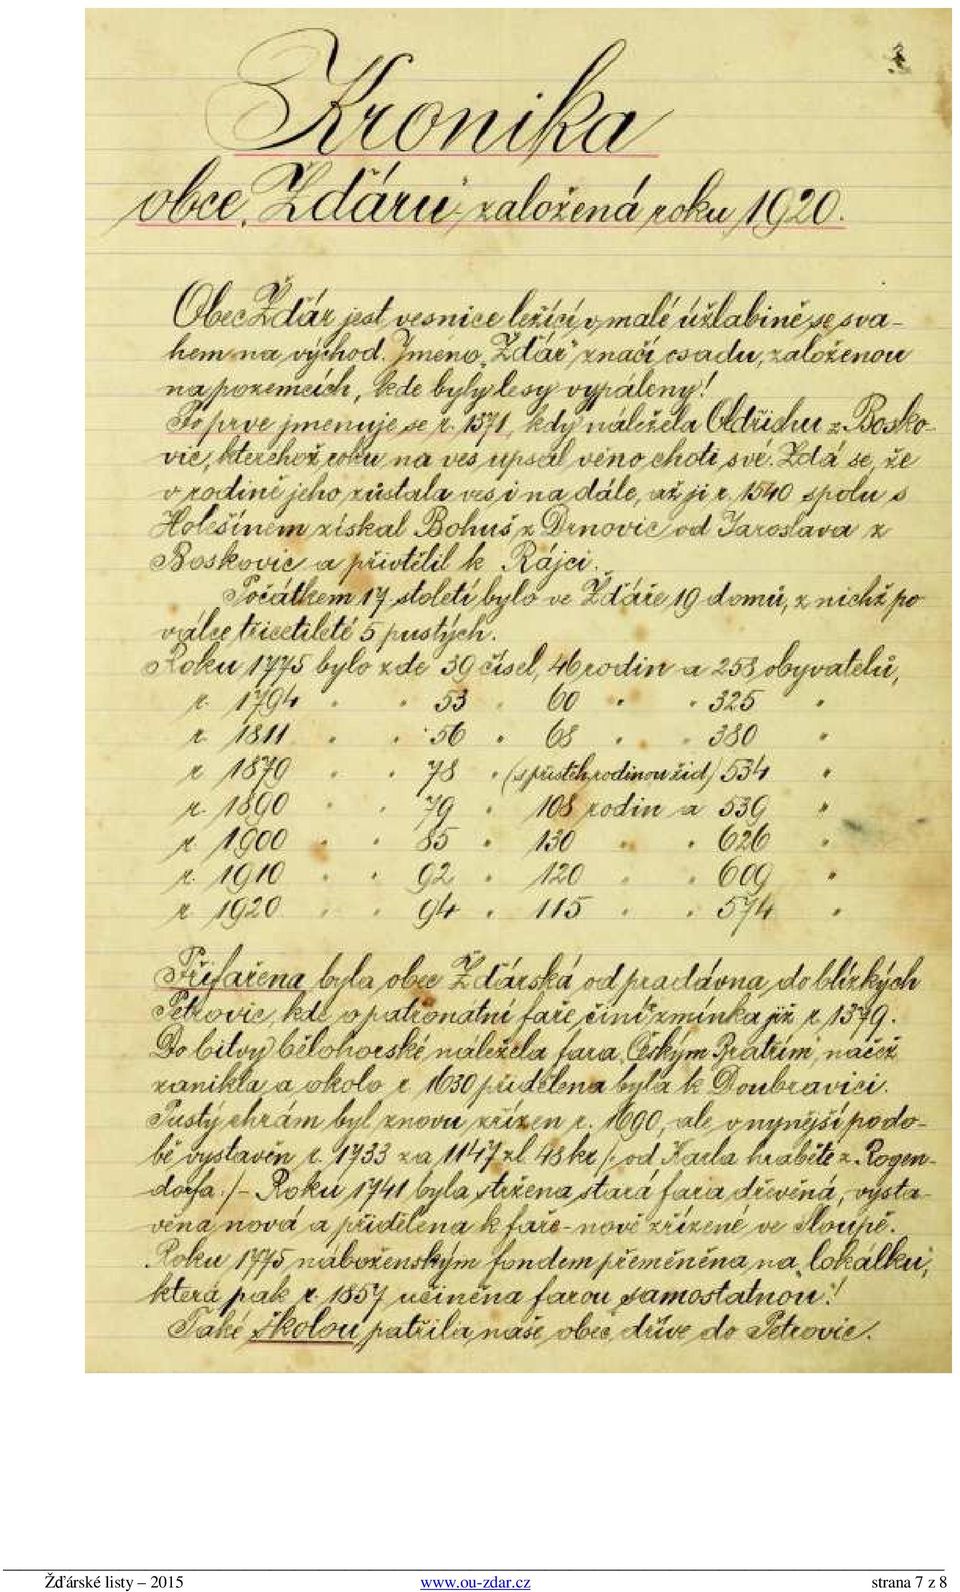 Kronika
obce „Žďáru" založená roku 1920.
Obec Žďár jest vesnice ležící v malé úžlabině se sva-
hem na východ. Jméno „Žďár" značí osadu, založenou
na pozemcích, kde byly lesy vypáleny!
Po prve jmenuje se r. 1371, kdy náležela Oldřichu z Bosko-
vic, kteréhož roku na ves upsal věno choti své. Zdá se, že
v rodině jeho zůstala ves i na dále, až ji r. 1540 spolu s
Holešínem získal Bohuš z Drnovic od Jaroslava z
Boskovic a přivtělil k Rájci.
Počátkem 17 století bylo ve Žďáře 19 domů, z nichž po
válce třicetileté 5 pustých.
Roku 1775 bylo zde 39 čísel, 46 rodin a 253 obyvatelů,
r. 1794 " " 53 " 60 " " 325 "
r. 1811 " " 56 " 68 " " 380 "
r 1870 " " 78 " (s přistěh. rodinou žid) 534 "
r. 1890 " " 79 " 108 rodin a 539 "
r. 1900 " " 85 " 130 " " 626 "
r. 1910 " " 92 " 120 " " 609 "
r 1920 " " 94 " 115 " " 574 "
Přifařena byla obec Žďárská od pradávna do blízkých
Petrovic, kde o patronátní faře činí se zmínka již r. 1379.
Do bitvy bělohorské náležela fara „Českým Bratřím", načež
zanikla a okolo r. 1630 přidělena byla k Doubravici.
Pustý chrám byl znovu zřízen r. 1690, ale v nynější podo-
bě vystavěn r. 1733 za 1147 zl. 48 kr /: od Karla hraběte z Rogen-
dorfa :/ - Roku 1741 byla stržena stará fara dřevěná, vysta-
věna nová a přidělena k faře - nově zřízené ve Sloupě.
Roku 1775 náboženským fondem přeměněna na „lokálku",
která pak r. 1857 učiněna farou „samostatnou"!
Také školou patřila naše obec dříve do Petrovic.
Žďárské listy – 2015 www.ou-zdar.cz strana 7 z 8